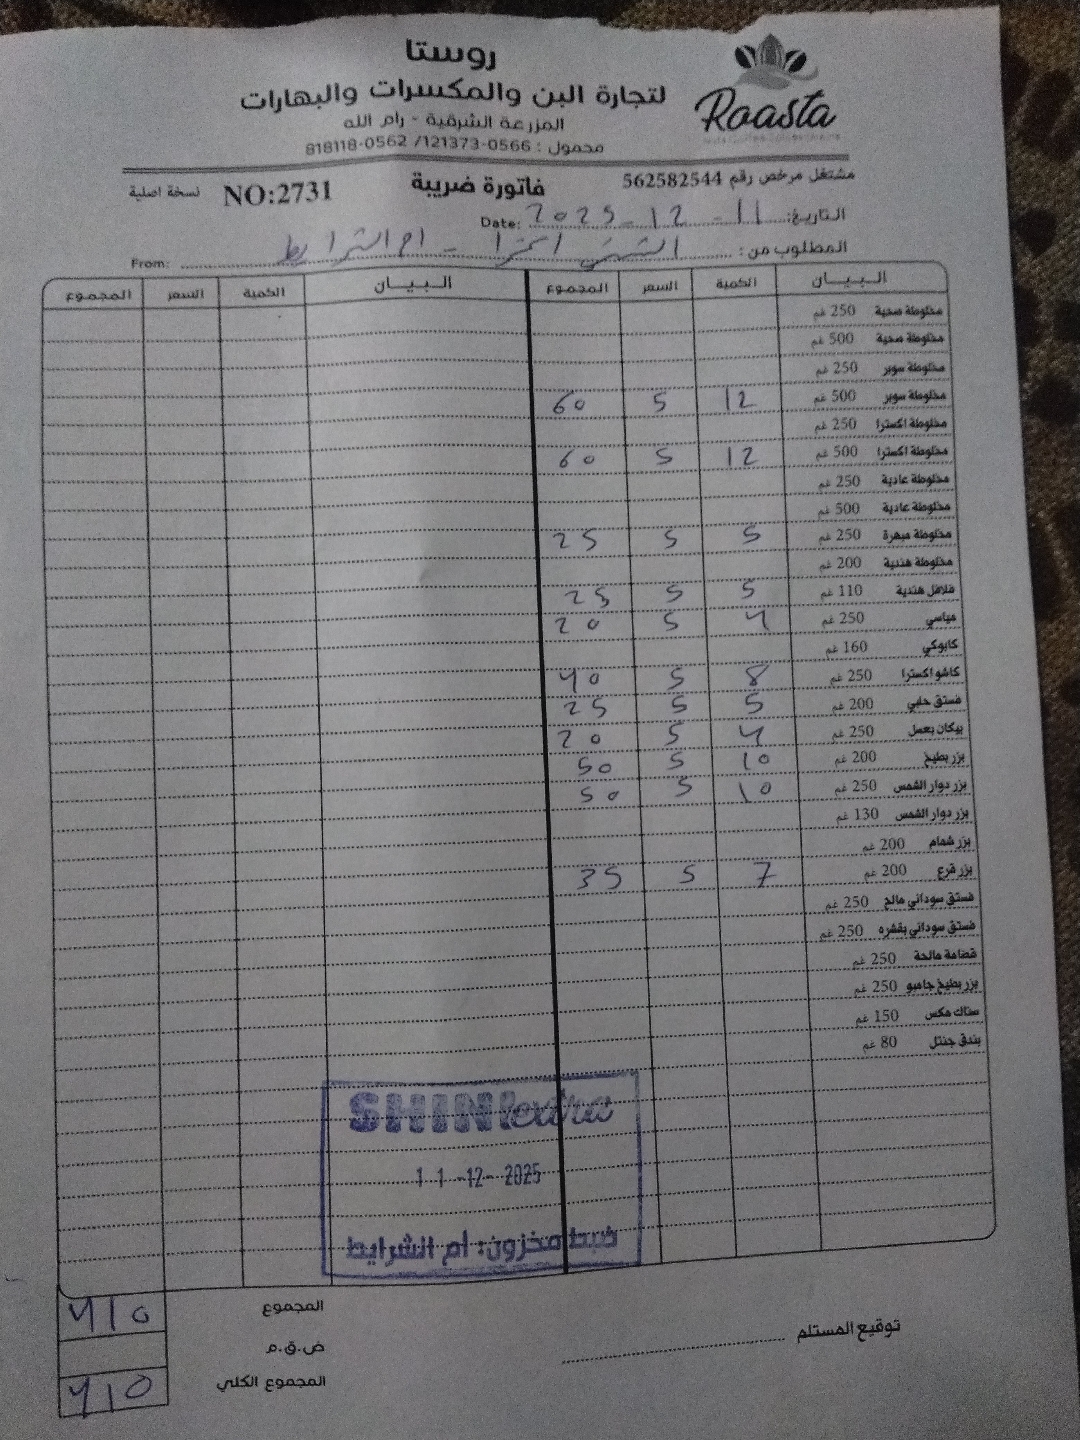 روستا
لتجارة البن والمكسرات والبهارات
المزرعة الشرقية - رام الله
محمول : 0566-121373 / 0562-818118
Roasta
مشتغل مرخص رقم 562582544
فاتورة ضريبة
NO:2731
نسخة اصلية
التاريخ: 11 - 12 - 2025 Date:
المطلوب من: الشني اكسترا - ام الشرايط From:
البيان الكمية السعر المجموع البيان الكمية السعر المجموع
مخلوطة صحية 250 غم
مخلوطة صحية 500 غم
مخلوطة سوبر 250 غم
مخلوطة سوبر 500 غم 12 5 60
مخلوطة اكسترا 250 غم
مخلوطة اكسترا 500 غم 12 5 60
مخلوطة عادية 250 غم
مخلوطة عادية 500 غم
مخلوطة مبهرة 250 غم 5 5 25
مخلوطة هندية 200 غم
فلافل هندية 110 غم 5 5 25
مياسي 250 غم 4 5 20
كابوكي 160 غم
كاشو اكسترا 250 غم 8 5 40
فستق حلبي 200 غم 5 5 25
بيكان بعسل 250 غم 4 5 20
بزر بطيخ 200 غم 10 5 50
بزر دوار الشمس 250 غم 10 5 50
بزر دوار الشمس 130 غم
بزر شمام 200 غم
بزر قرع 200 غم 7 5 35
فستق سوداني مالح 250 غم
فستق سوداني بقشره 250 غم
قضامة مالحة 250 غم
بزر بطيخ جامبو 250 غم
سناك مكس 150 غم
بندق جنتل 80 غم
SHINI extra
11-12-2025
ضبط مخزون: ام الشرايط
المجموع 410
ض.ق.م
المجموع الكلي 410
توقيع المستلم